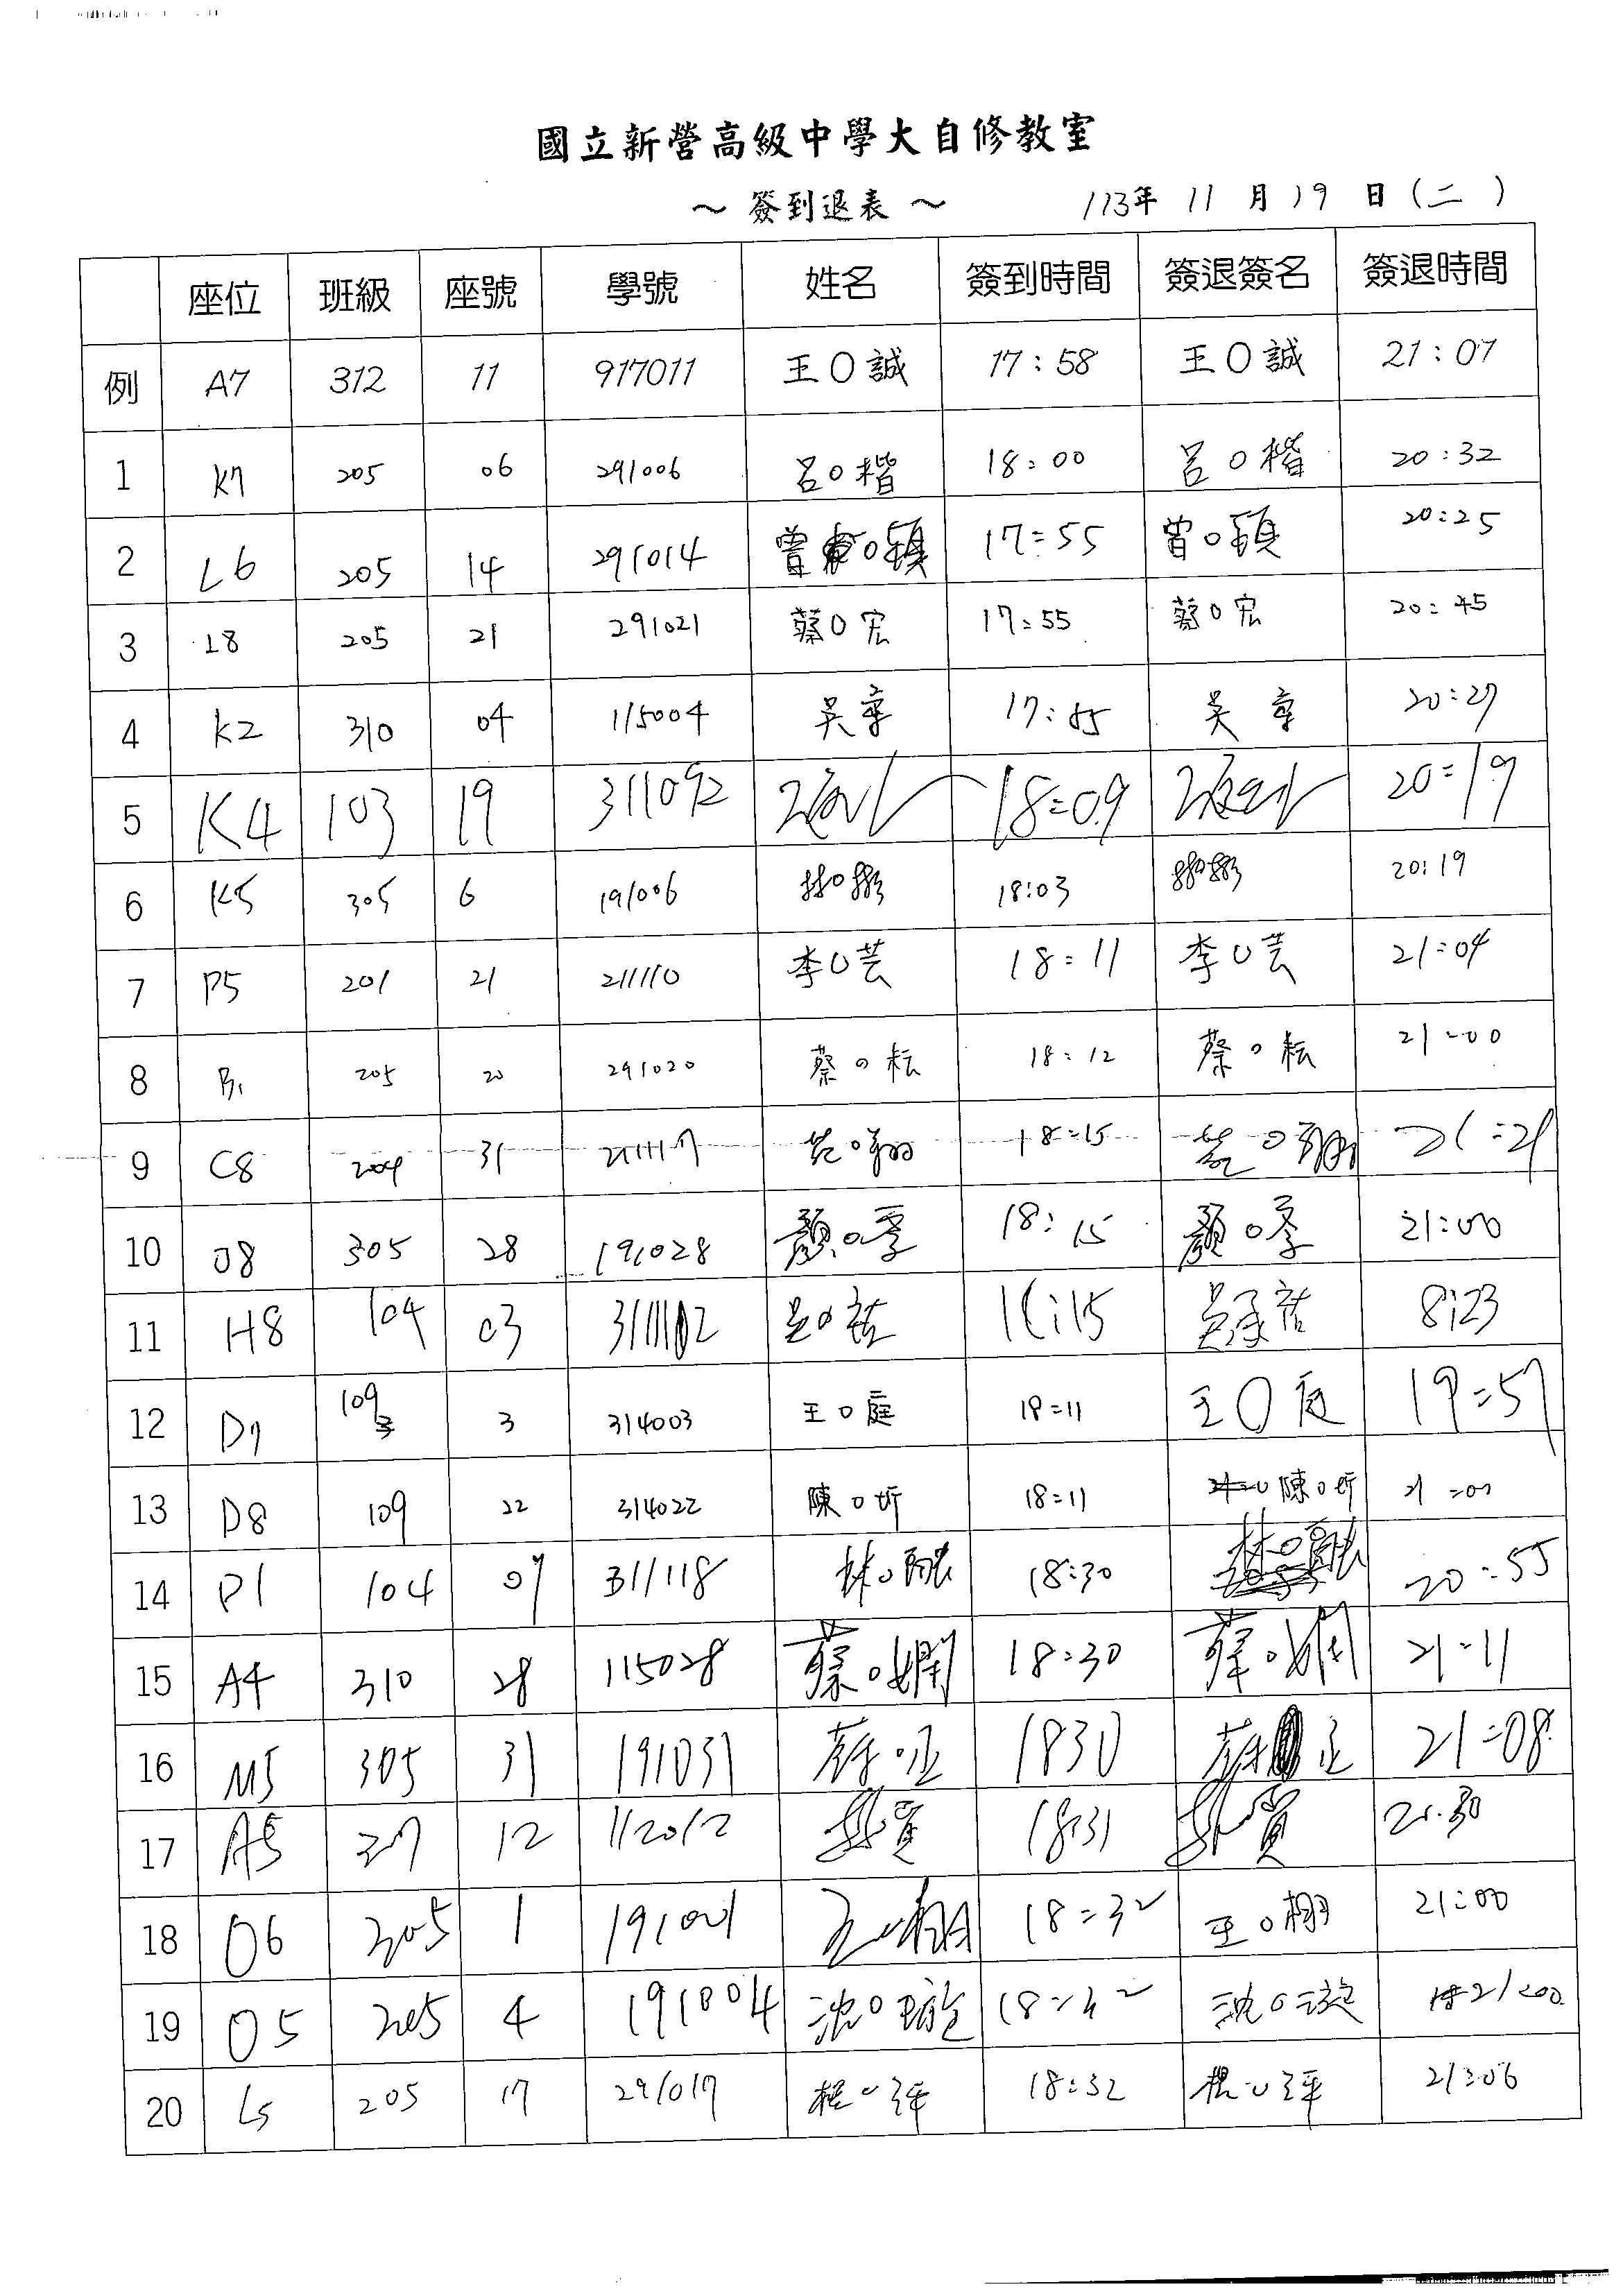 國立新營高級中學大自修教室
～簽到退表～ 113年 11 月 19 日(二)
座位 班級 座號 學號 姓名 簽到時間 簽退簽名 簽退時間
例 A7 312 11 917011 王O誠 17:58 王O誠 21:07
1 K7 205 06 291006 呂O楷 18:00 呂O楷 20:32
2 L6 205 14 291014 曾O穎 17:55 曾O穎 20:25
3 L8 205 21 291021 蔡O宏 17:55 蔡O宏 20:45
4 K2 310 04 115004 吳章 17:55 吳章 20:27
5 K4 103 19 311092 18:09 20:19
6 K5 305 6 191006 18:03 20:19
7 P5 201 21 211110 李O芸 18:11 李O芸 21:04
8 B1 205 20 291020 蔡O耘 18:12 蔡O耘 21:00
9 C8 204 31 211117 18:15 21:21
10 O8 305 28 191028 顏O季 18:15 顏O季 21:00
11 H8 104 03 吳O祐 吳承祐 8:23
12 D7 109 3 314003 王O庭 18:11 王O庭 19:57
13 D8 109 22 314022 陳O圻 18:11 陳O圻 21:00
14 P1 104 07 311118 林O 18:30 林O 20:55
15 A4 310 28 115028 蔡O嫻 18:30 蔡O嫻 21:11
16 M5 305 31 191031 蘇O正 1830 蘇 正 21:08
17 A5 307 12 112012 18:31 21:30
18 O6 305 1 191001 王O栩 18:32 王O栩 21:00
19 O5 305 4 191004 沈O璇 18:32 沈O璇 21:00
20 L5 205 17 291017 18:32 21:06